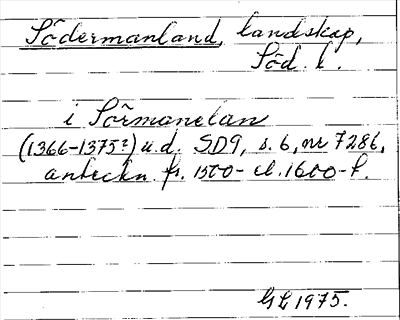 Södermanland, landskap,
Söd. l.
i Sörmanelan
(1366-1375?) u.d. SD9, s. 6, nr 7286,
anteckn. fr. 1500- el. 1600-t.
GL 1975.